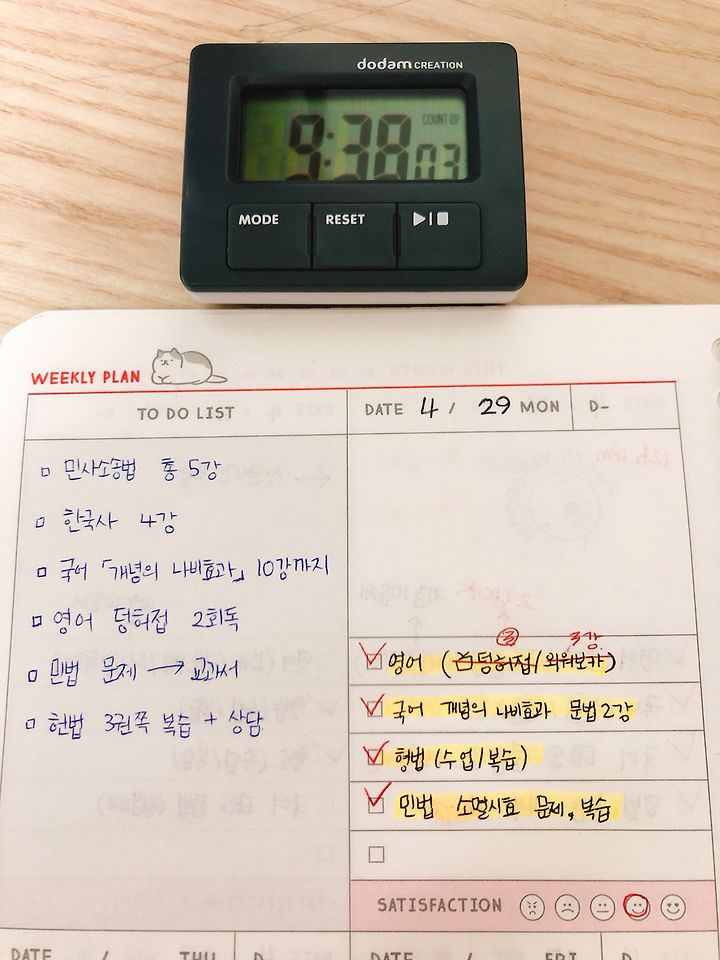 dodam CREATION
COUNT UP
9:38 03
MODE RESET
WEEKLY PLAN
TO DO LIST
민사소송법 총 5강
한국사 4강
국어 「개념의 나비효과」 10강까지
영어 덩허접 2회독
민법 문제 → 교과서
헌법 3권쪽 복습 + 상담
DATE 4 / 29 MON D-
3강
영어 (덩허접/
국어 개념의 나비효과 문법 2강
형법 (수업/복습)
민법 소멸시효 문제, 복습
SATISFACTION
DATE / THU D
DATE / FRI D